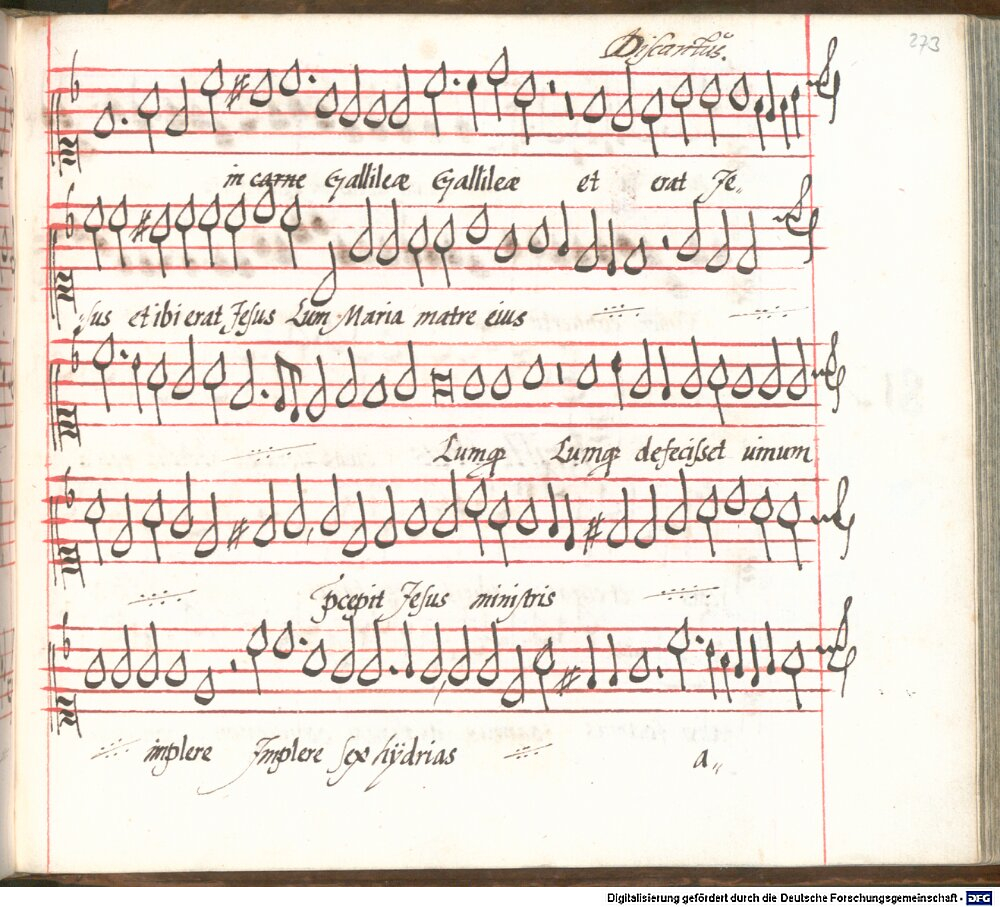 Discantus.
273
in carne Gallileæ Gallileæ et erat Je„
sus et ibi erat Jesus Cum Maria matre eius
Cumqȝ Cumqȝ defecisset uinum
p̄cepit Jesus ministris
implere Jmplere sex hÿdrias a„
Digitalisierung gefördert durch die Deutsche Forschungsgemeinschaft - DFG